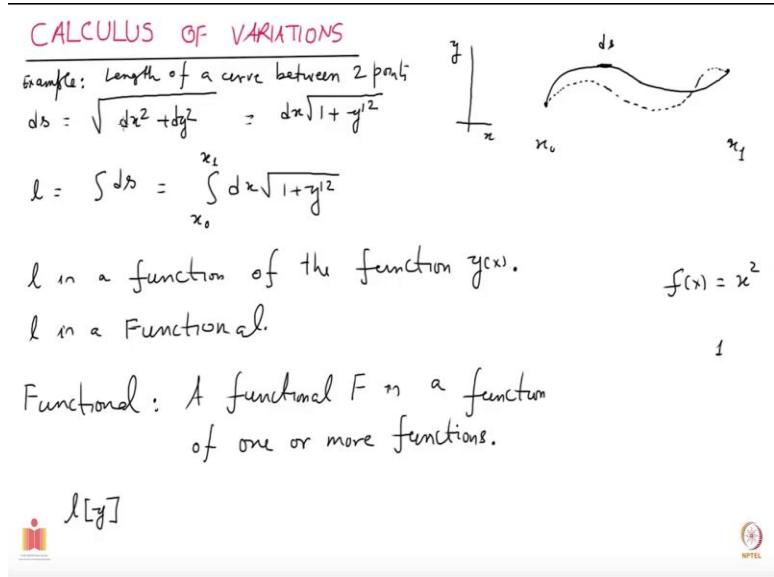 CALCULUS OF VARIATIONS
Example: Length of a curve between 2 points
ds = √(dx² + dy²) = dx√(1 + y'²)
y
x
ds
x₀
x₁
l = ∫ds = ∫_{x₀}^{x₁} dx√(1 + y'²)
l is a function of the function y(x).
f(x) = x²
l is a Functional.
1
Functional: A functional F is a function
of one or more functions.
l[y]
NPTEL